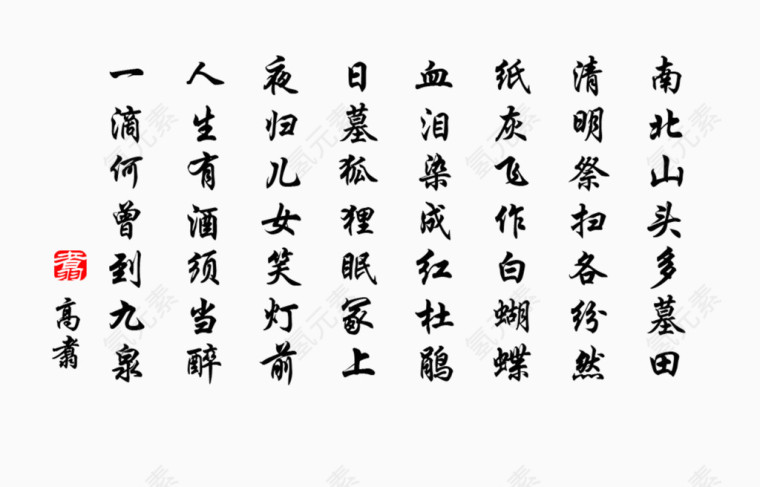 南北山头多墓田
清明祭扫各纷然
纸灰飞作白蝴蝶
血泪染成红杜鹃
日墓狐狸眠冢上
夜归儿女笑灯前
人生有酒须当醉
一滴何曾到九泉
高翥
翥
氢元素